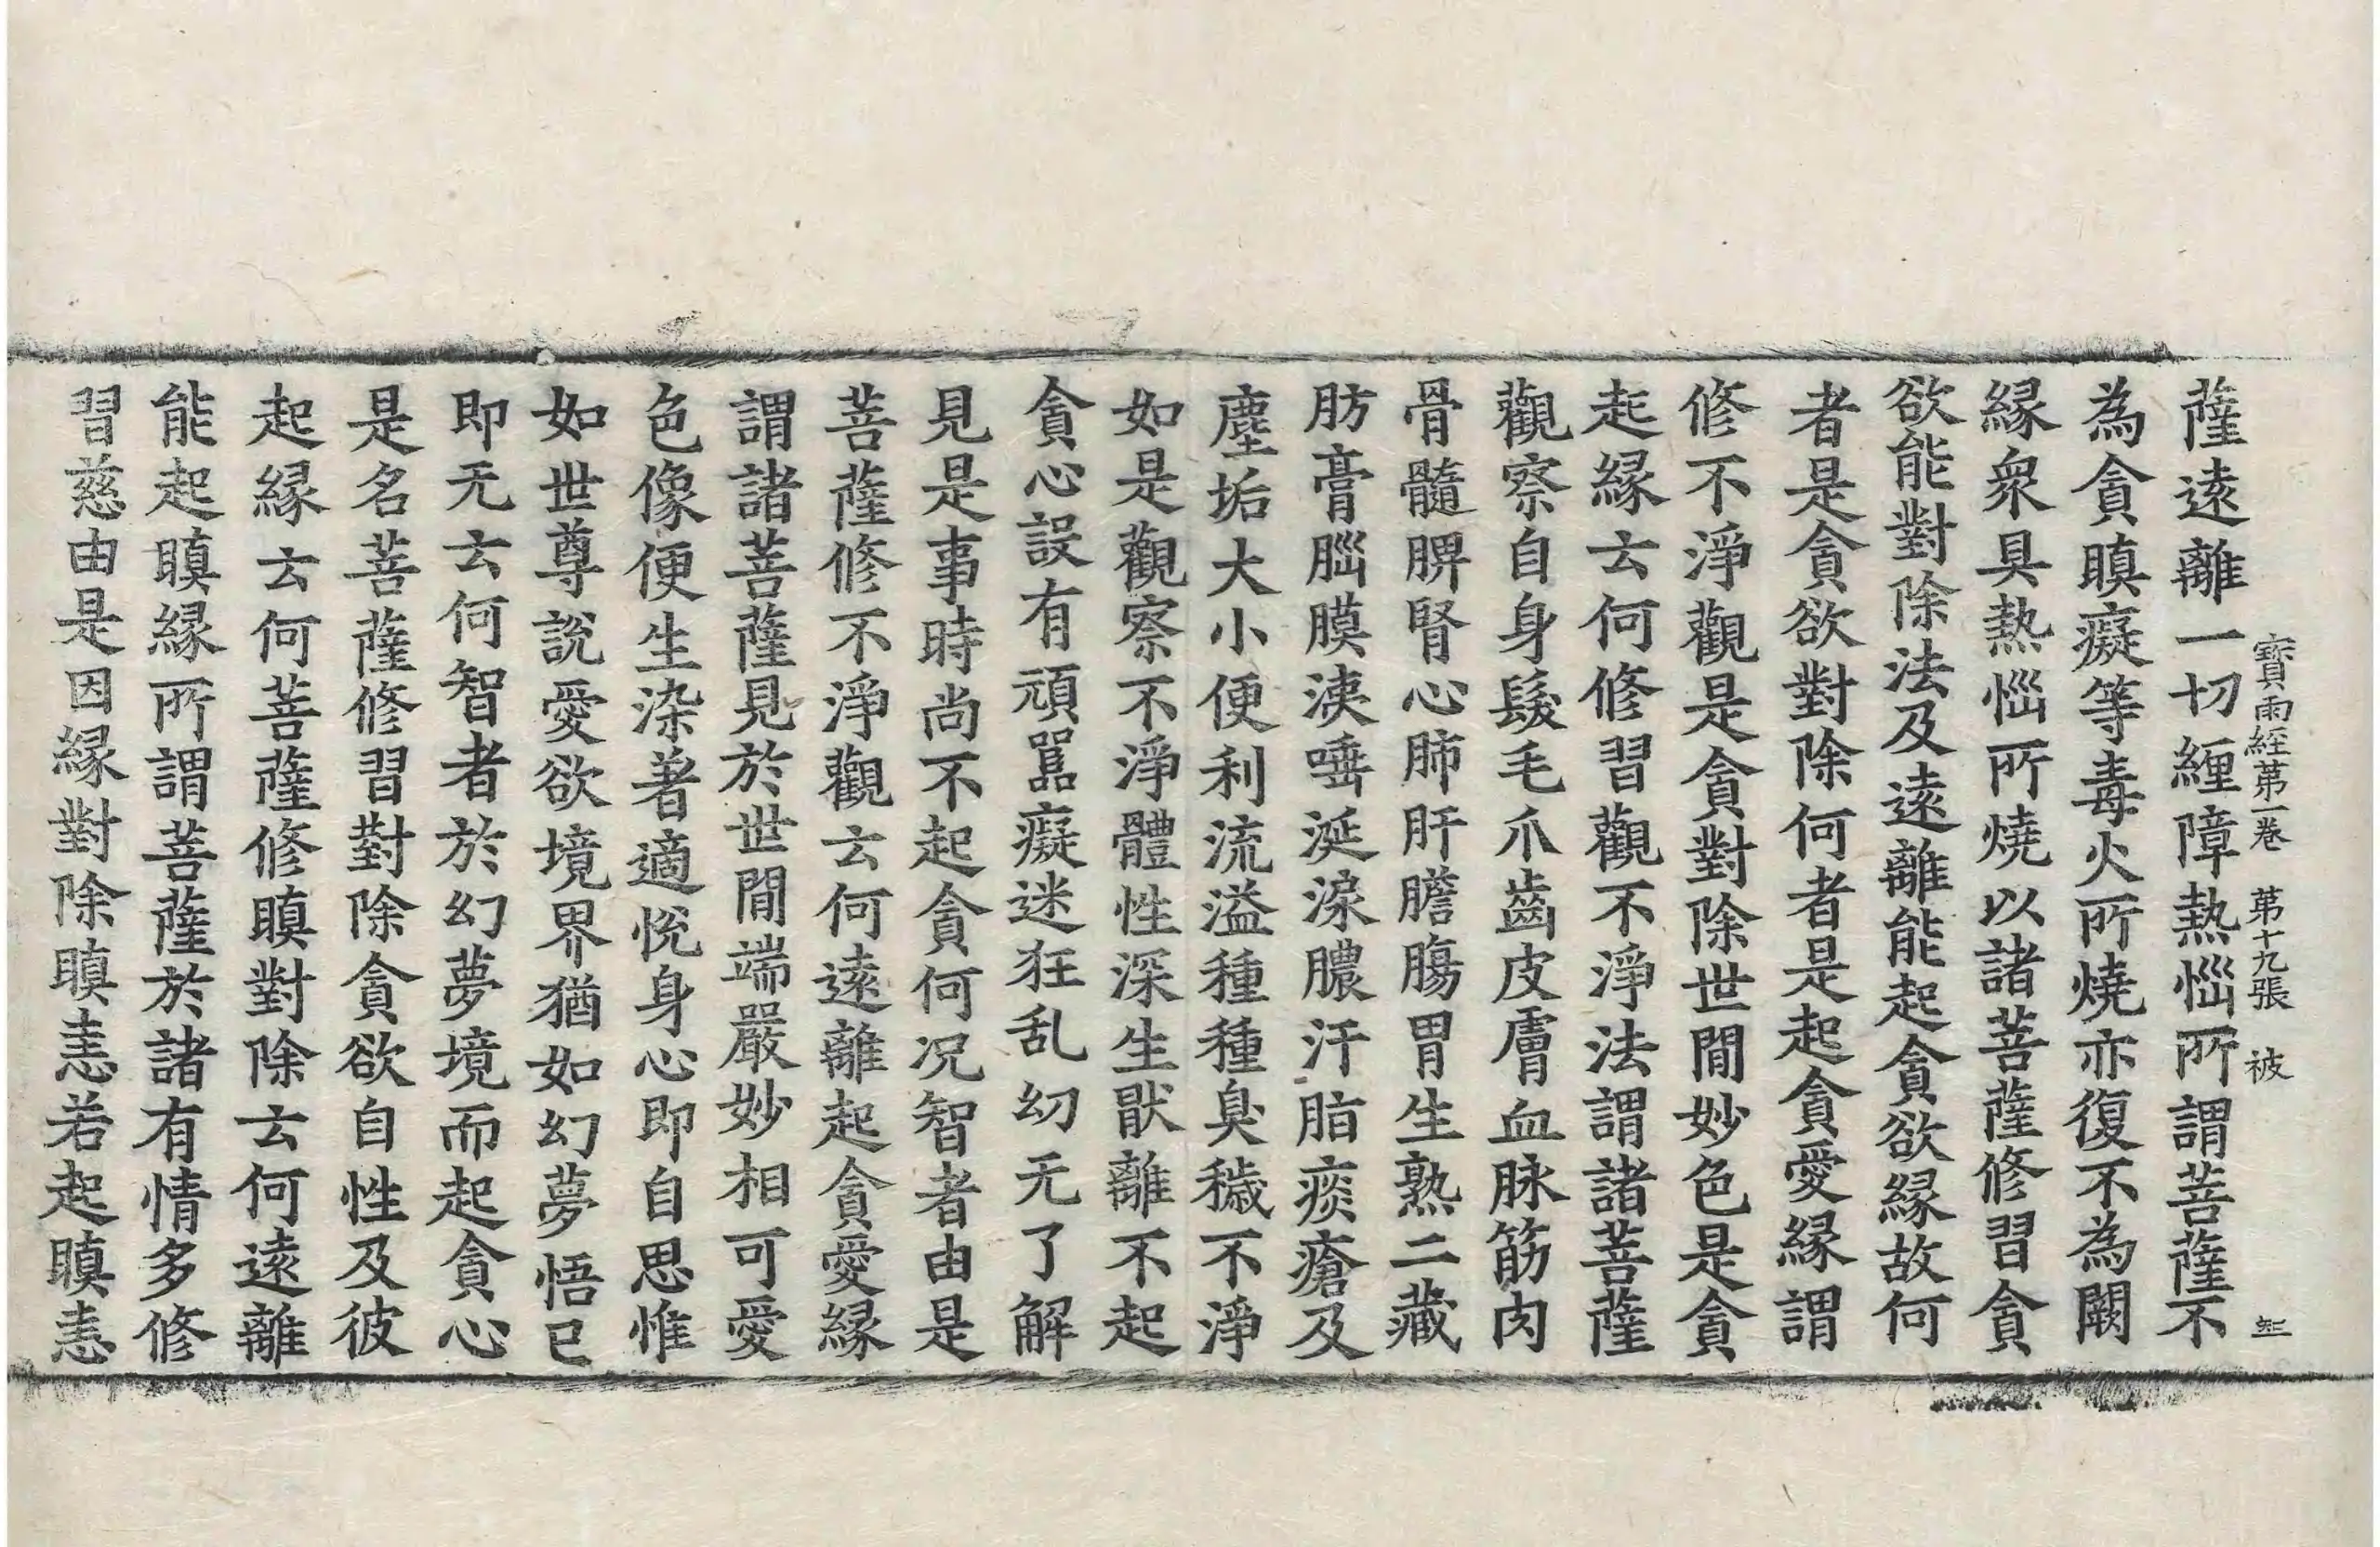 寶雨經第一卷 第十九張 被
薩遠離一切纏障熱惱所謂菩薩不
為貪瞋癡等毒火所燒亦復不為闕
緣衆具熱惱所燒以諸菩薩修習貪
欲能對除法及遠離能起貪欲緣故何
者是貪欲對除何者是起貪愛緣謂
修不淨觀是貪對除世閒妙色是貪
起緣云何修習觀不淨法謂諸菩薩
觀察自身髮毛爪齒皮膚血脉筋肉
骨髓脾腎心肺肝膽腸胃生熟二藏
肪膏腦膜洟唾涎淚膿汗脂痰瘡及
塵垢大小便利流溢種種臭穢不淨
如是觀察不淨體性深生猒離不起
貪心設有頑嚚癡迷狂乱幼无了解
見是事時尚不起貪何况智者由是
菩薩修不淨觀云何遠離起貪愛緣
謂諸菩薩見於世閒端嚴妙相可愛
色像便生染著適悅身心即自思惟
如世尊說愛欲境界猶如幻夢悟已
即无云何智者於幻夢境而起貪心
是名菩薩修習對除貪欲自性及彼
起緣云何菩薩修瞋對除云何遠離
能起瞋緣所謂菩薩於諸有情多修
習慈由是因緣對除瞋恚若起瞋恚